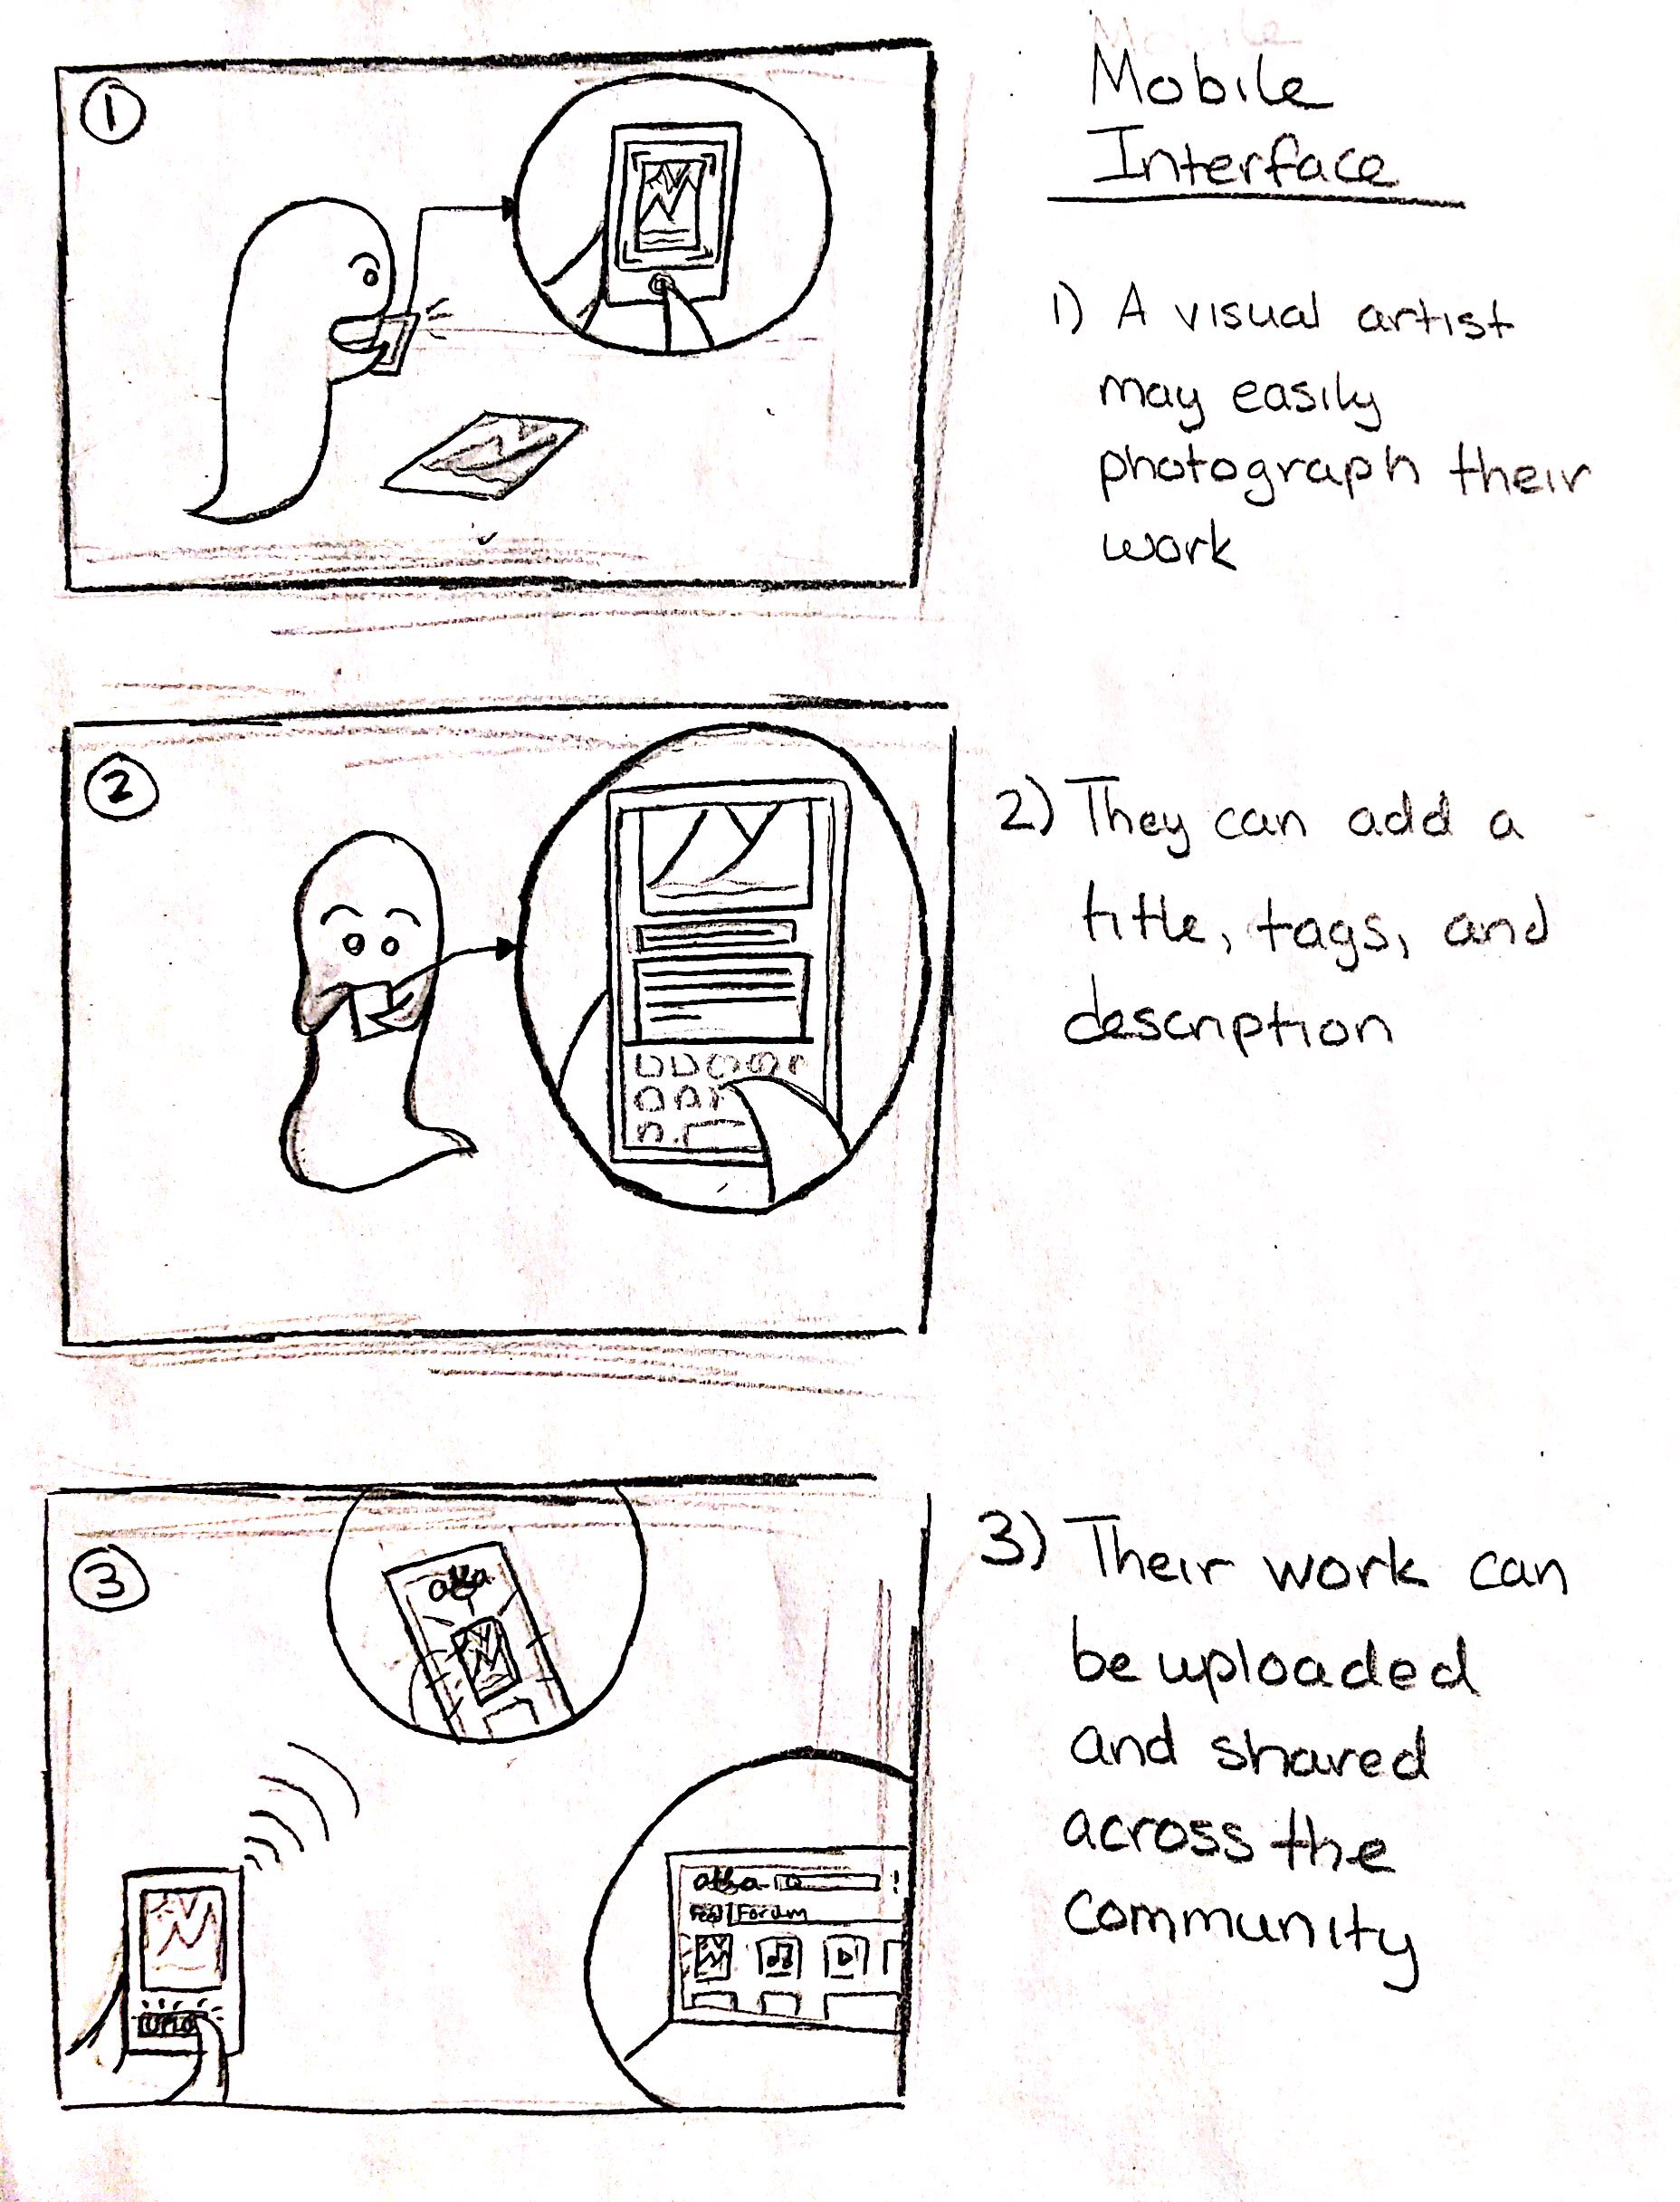 Mobile
Interface
1
1) A visual artist
may easily
photograph their
work
2
2) They can add a
title, tags, and
description
3
3) Their work can
be uploaded
and shared
across the
community
Forum